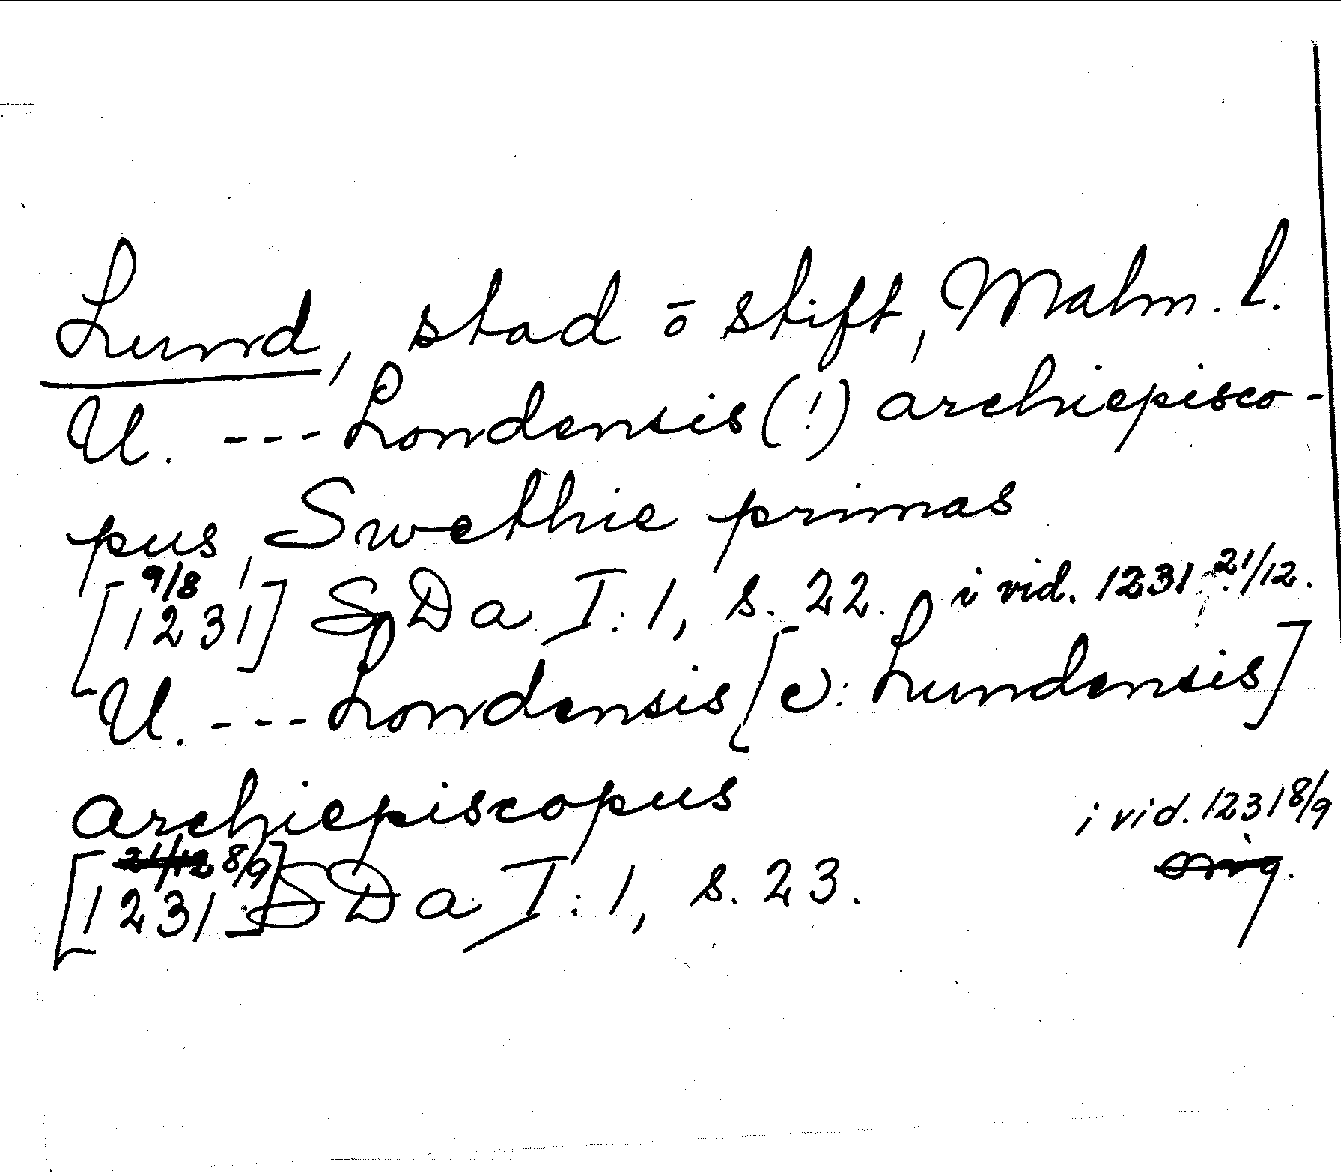 Lund, stad ō stift, Malm. l.
U. --- Londensis (!) archiepisco-
pus, Swethie primas
[1231 9/8] SDa I:1, s. 22. i vid. 1231 21/12.
U. --- Londensis [v: Lundensis]
archiepiscopus
i vid. 1231 8/9
[1231 21/12 8/9] SDa I:1, s. 23. orig.